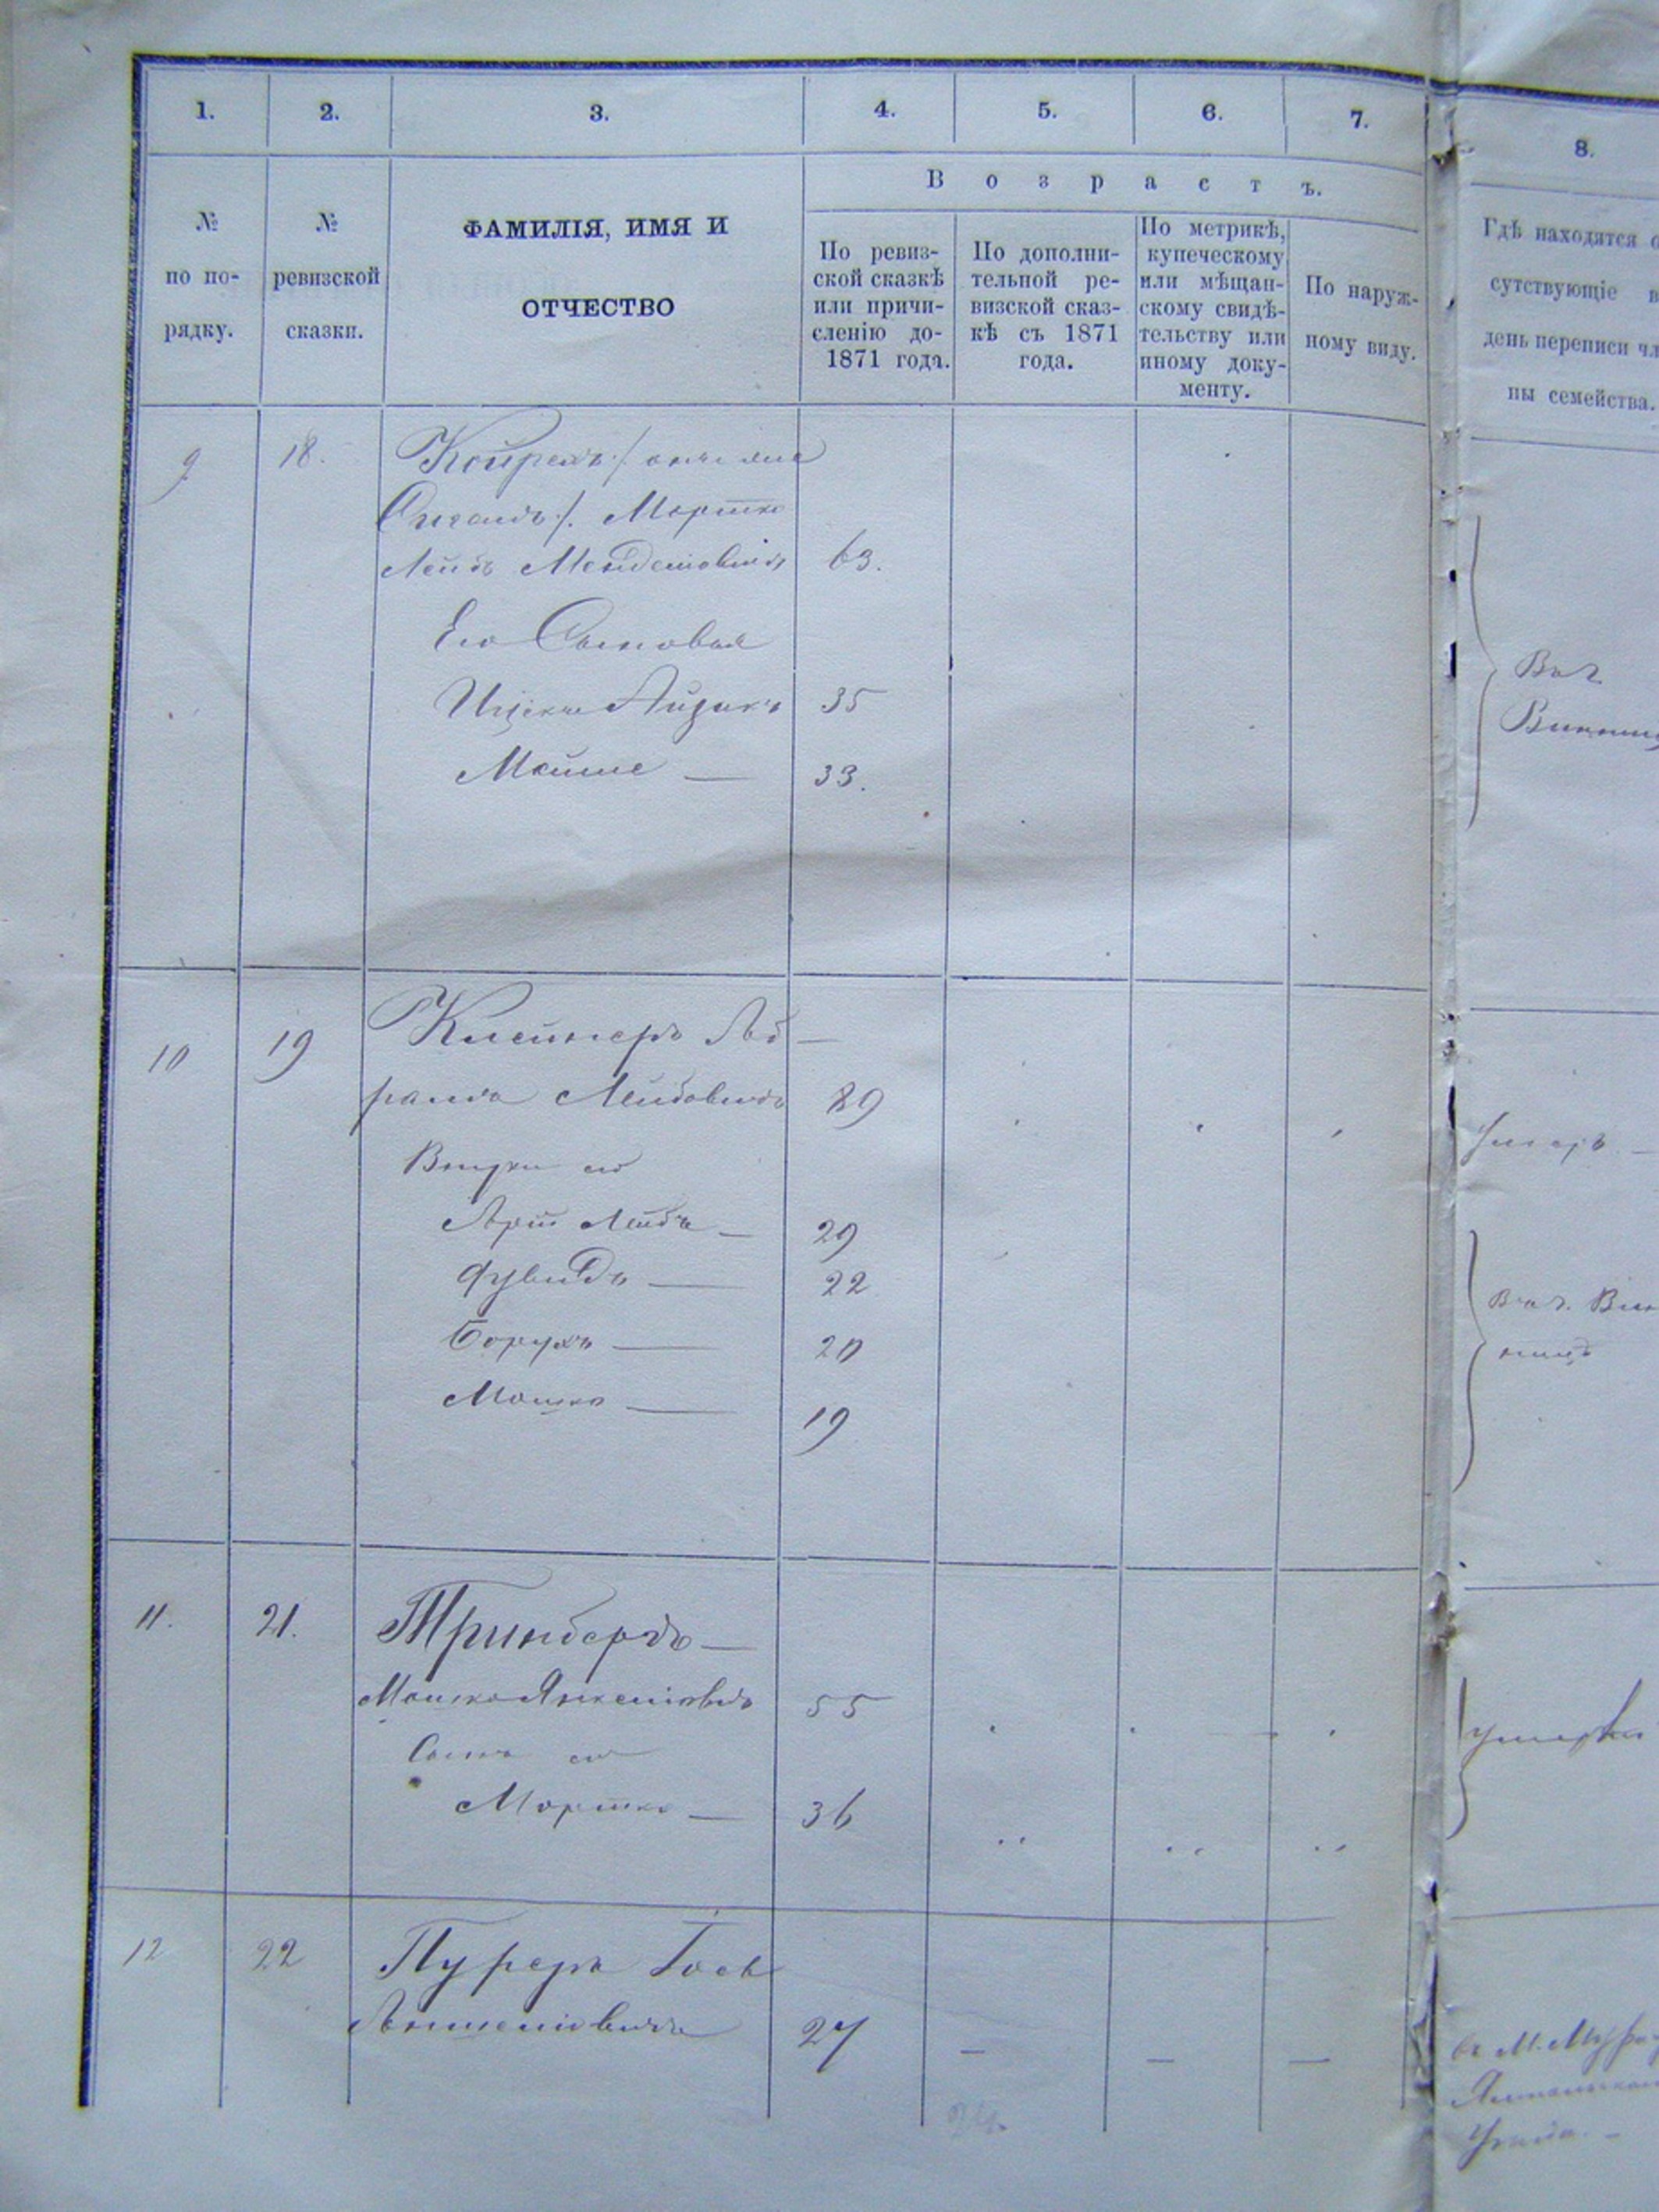 1. 2. 3. 4. 5. 6. 7. 8.
В о з р а с т ъ.
№ по по-рядку.
№ ревизской сказки.
ФАМИЛІЯ, ИМЯ И
ОТЧЕСТВО
По ревиз-
ской сказкѣ
или причи-
сленію до-
1871 года.
По дополни-
тельной ре-
визской сказ-
кѣ съ 1871
года.
По метрикѣ,
купеческому
или мѣщан-
скому свидѣ-
тельству или
иному доку-
менту.
По наруж-
ному виду.
Гдѣ находятся о
сутствующіе в
день переписи чл
ны семейства.
9 18.
Мортко
Лейбъ Менделіовичъ 63.
Его Сыновья
Ицко Айзикъ 35
Мойше — 33.
Въ г.
Винниц
10 19 Клейнеръ Аб—
рамъ Лейбовичъ 89
Умеръ —
Внуки его
Арій Лейбъ — 29
Дувидъ — 22
Борухъ — 20
Мошко — 19
Въ г. Вин
ницѣ
11. 21. Гринбергъ —
Мошко Янкеліовичъ 55
Сынъ его
Мортко — 36
умерли
12 22 Пуреръ Іось
Аншеліовичъ 27 — — —
Въ М.
Ямпольском
Уѣзда. —